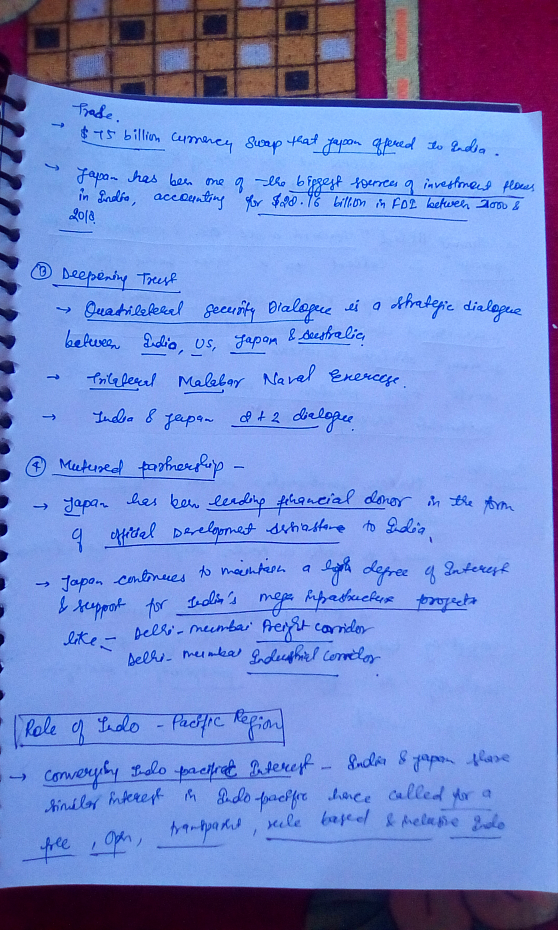 Trade.
→ $75 billion currency swap that Japan offered to India.
→ Japan has been one of the biggest sources of investment flows
in India, accounting for $28.16 billion in FDI between 2000 &
2018
③ Deepening Trust
→ Quadrilateral Security Dialogue is a strategic dialogue
between India, US, Japan & Australia.
→ Trilateral Malabar Naval Exercise.
→ India & Japan 2+2 dialogue.
④ Matured partnership –
→ Japan has been leading financial donor in the form
of official Development Assistance to India.
→ Japan continues to maintain a high degree of Interest
& support for India's mega infrastructure projects
like – Delhi-mumbai Freight corridor
Delhi-mumbai Industrial corridor
Role of Indo-Pacific Region
→ Converging Indo pacific Interest – India & Japan share
similar interest in Indo pacific hence called for a
free, open, transparent, rule based & inclusive Indo